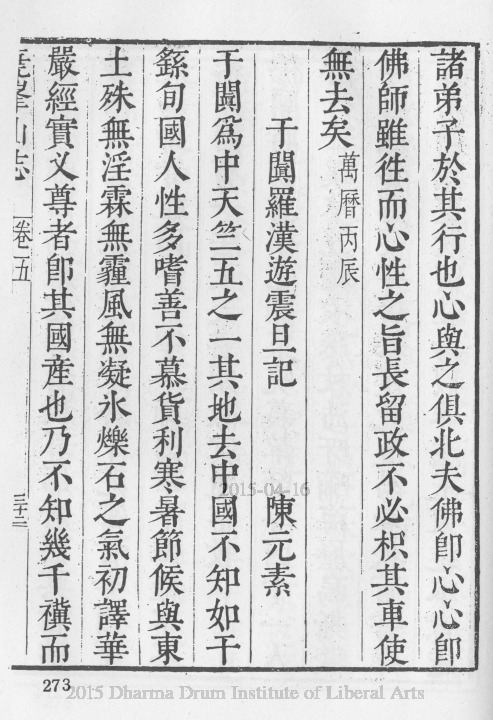 諸弟子於其行也心與之俱北夫佛卽心心卽
佛師雖徃而心性之旨長留政不必枳其車使
無去矣 萬曆丙辰
于闐羅漢遊震旦記 陳元素
于闐爲中天竺五之一其地去中國不知如干
繇旬國人性多嗜善不慕貨利寒暑節候與東
土殊無淫霖無霾風無凝氷爍石之氣初譯華
嚴經實义尊者卽其國產也乃不知幾千禩而
堯峯山志 卷五 三十二
273
2015-04-16
2015 Dharma Drum Institute of Liberal Arts